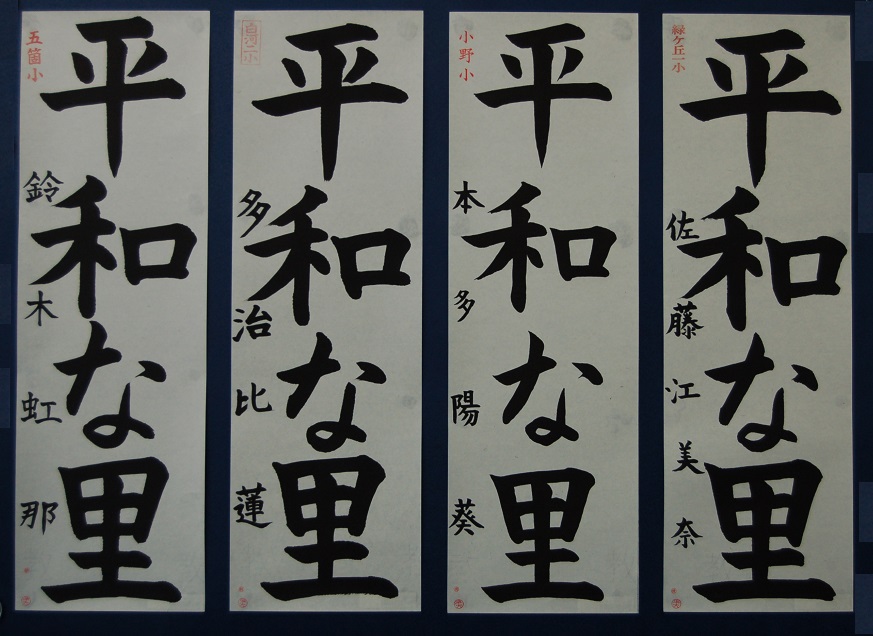 五箇小
平和な里
鈴木虹那
白河二小
平和な里
多治比蓮
小野小
平和な里
本多陽葵
緑ケ丘一小
平和な里
佐藤江美奈